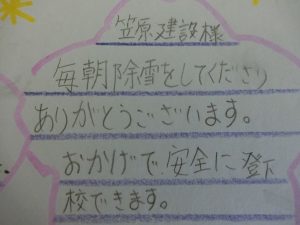 笠原建設様
毎朝除雪をしてくださり
ありがとうございます。
おかげで、安全に登下
校できます。